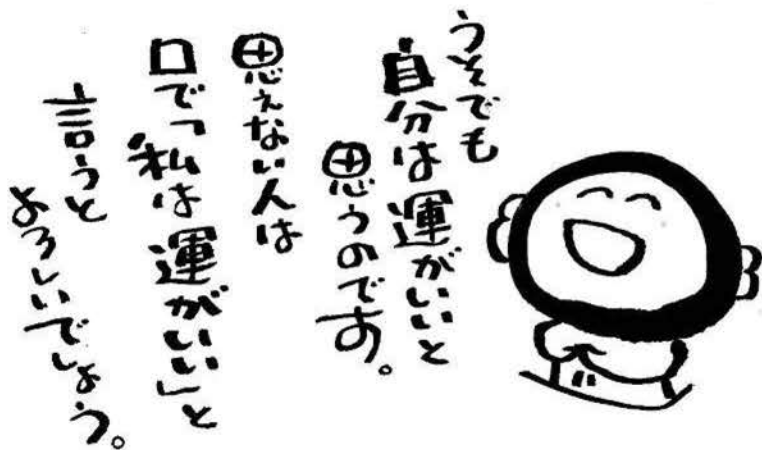 うそでも
自分は運がいいと
思うのです。
思えない人は
口で「私は運がいい」と
言うと
よろしいでしょう。